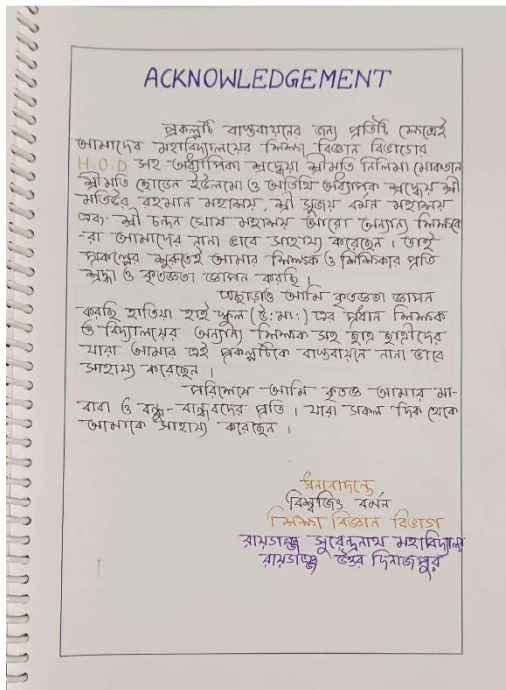 ACKNOWLEDGEMENT
প্রকল্পটি বাস্তবায়নের জন্য প্রতিটি ক্ষেত্রেই
আমাদের মহাবিদ্যালয়ের শিক্ষা বিজ্ঞান বিভাগের
H.O.D সহ অধ্যাপিকা শ্রদ্ধেয়া শ্রীমতি নিলিমা মোকতান
শ্রীমতি হোডেন ইডলমো ও অতিথি অধ্যাপক শ্রদ্ধেয় শ্রী
মতিউর রহমান মহাশয়, শ্রী সুজয় বর্মন মহাশয়
এবং শ্রী চন্দন ঘোষ মহাশয় আরো অন্যান্য শিক্ষকে-
রা আমাদের নানা ভাবে সাহায্য করেছেন । তাই
প্রকল্পের শুরুতেই আমার শিক্ষক ও শিক্ষিকার প্রতি
শ্রদ্ধা ও কৃতজ্ঞতা জ্ঞাপন করছি ।
এছাড়াও আমি কৃতজ্ঞতা জ্ঞাপন
করছি হাতিয়া হাই স্কুল (উ:মা:) এর প্রধান শিক্ষক
ও বিদ্যালয়ের অন্যান্য শিক্ষক সহ ছাত্র ছাত্রীদের
যারা আমার এই প্রকল্পটিকে বাস্তবায়নে নানা ভাবে
সাহায্য করেছেন ।
পরিশেষে আমি কৃতজ্ঞ আমার মা-
বাবা ও বন্ধু-বান্ধবদের প্রতি । যারা সকল দিক থেকে
আমাকে সাহায্য করেছেন ।
ধন্যবাদান্তে
বিশ্বজিৎ বর্মন
শিক্ষা বিজ্ঞান বিভাগ
রায়গঞ্জ সুরেন্দ্রনাথ মহাবিদ্যালয়
রায়গঞ্জ উত্তর দিনাজপুর